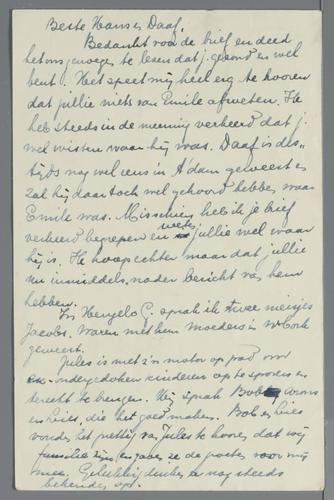 Beste Hans en Daaf,
Bedankt voor de brief en deed
het ons genoegen te lezen dat j. gezond en wel
bent. Het speet mij heel erg te hooren
dat jullie niets van Emile afweten. Ik
heb steeds in de meening verkeerd dat j.
wel wisten waar hij was. Daaf is des-
tijds nog wel eens in A'dam geweest en
zal hij daar toch wel gehoord hebben waar
Emile was. Misschien heb ik je brief
verkeerd begrepen en weten jullie wel waar
hij is. Ik hoop echter maar dat jullie
nu inmiddels nader bericht van hem
hebben.
In Hengelo O. sprak ik twee meisjes
Jacobs. Waren met hun moeder in
geweest.
Jules is met z'n motor op pad om
ondergedoken kinderen op te sporen en
terecht te brengen. Hij sprak Bob Arons
en Lies, die het goed maken. Bob en Lies
vonden het prettig van Jules te hooren dat wij
familie zijn en gaven ze de groeten voor mij
mee. Gelukkig duiken er nog steeds
bekenden op.